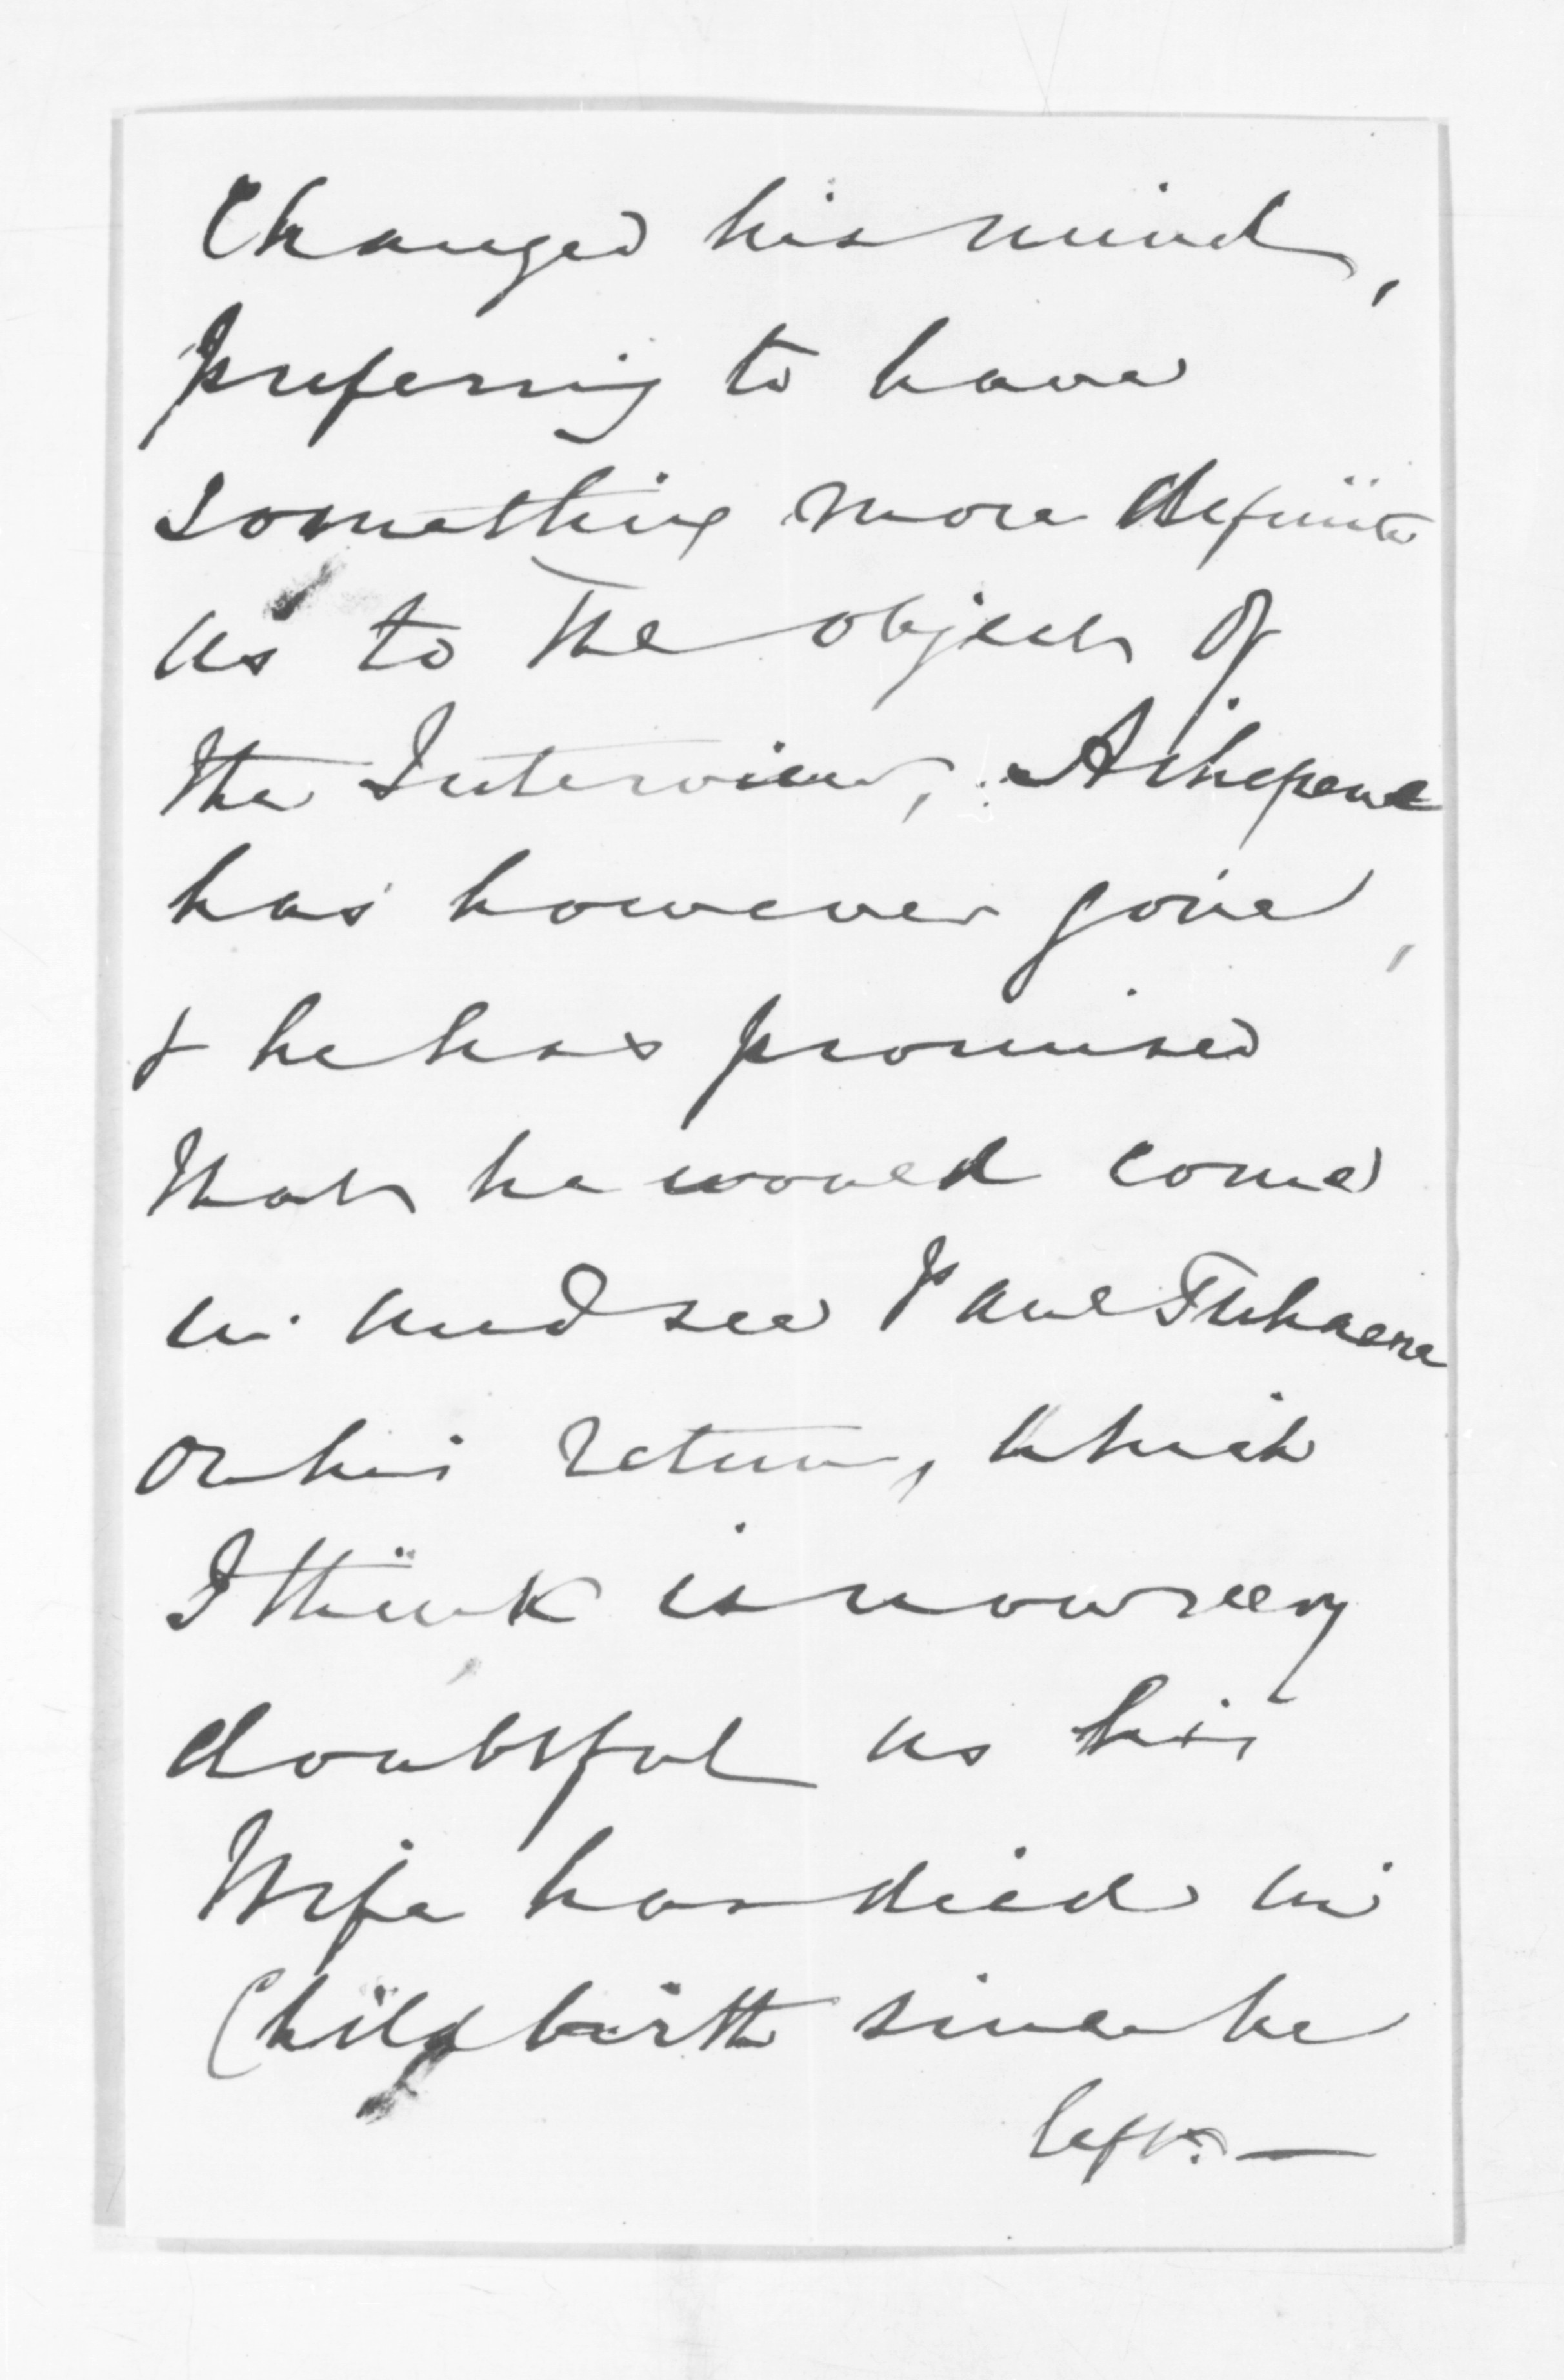 Changed his mind,
preferring to have
something more definite
as to the object of
the Interview, Aihepene
has however gone,
& he has promised
that he would come
in and see Paul Tuhaere
on his return, which
I think is now very
doubtful as his
Wife has died in
Childbirth since he
left. —